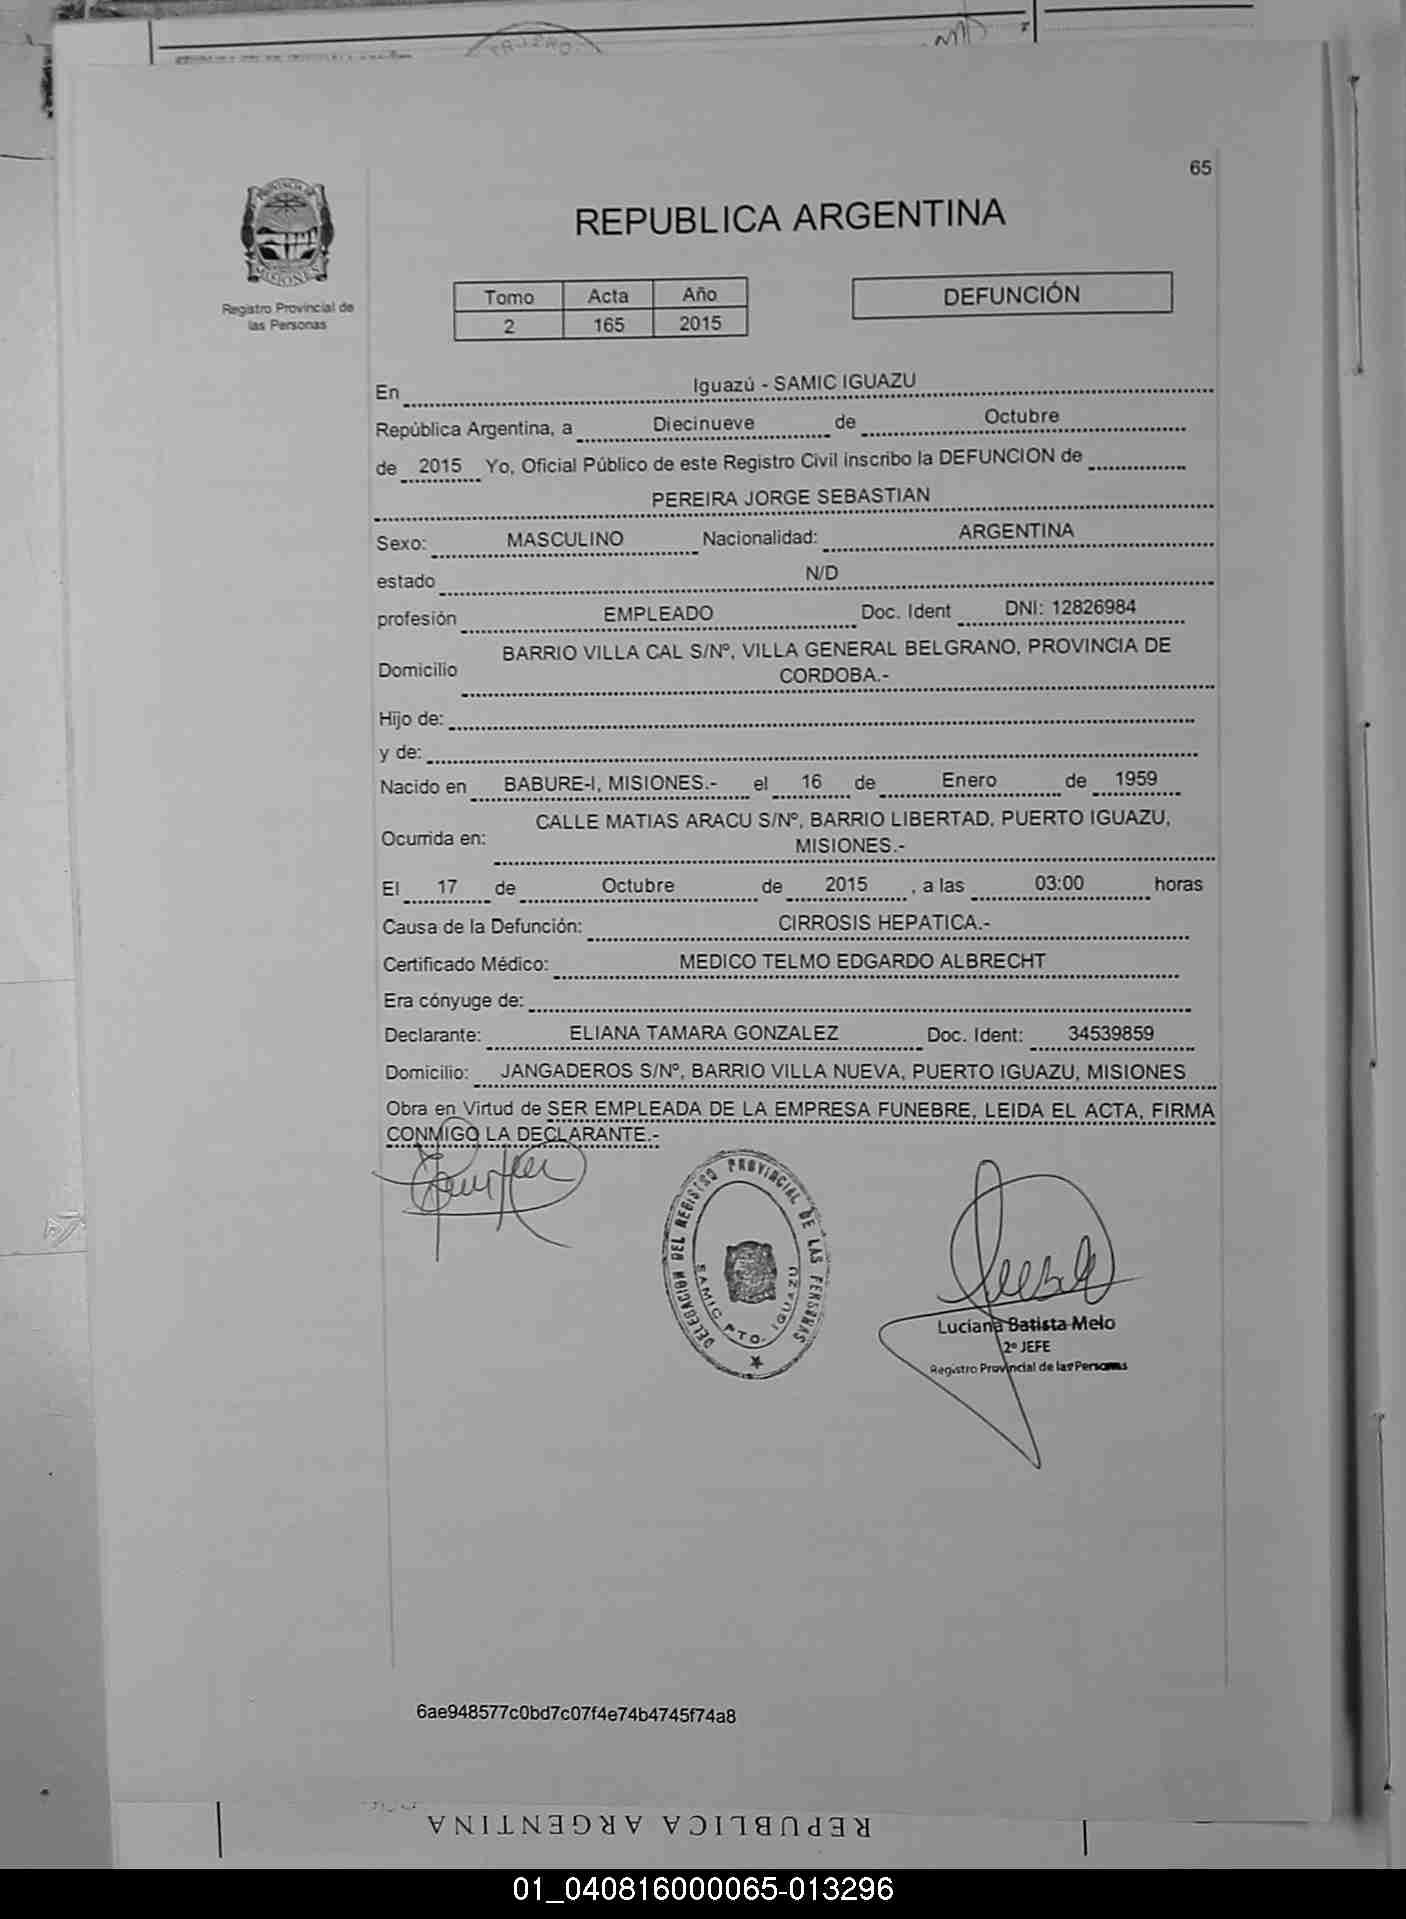 65
PROVINCIA DE
MISIONES
Registro Provincial de
las Personas
REPUBLICA ARGENTINA
Tomo Acta Año
2 165 2015
DEFUNCIÓN
En Iguazú - SAMIC IGUAZU
República Argentina, a Diecinueve de Octubre
de 2015 Yo, Oficial Público de este Registro Civil inscribo la DEFUNCION de
PEREIRA JORGE SEBASTIAN
Sexo: MASCULINO Nacionalidad: ARGENTINA
estado N/D
profesión EMPLEADO Doc. Ident DNI: 12826984
Domicilio BARRIO VILLA CAL S/Nº, VILLA GENERAL BELGRANO, PROVINCIA DE
CORDOBA.-
Hijo de:
y de:
Nacido en BABURE-I, MISIONES.- el 16 de Enero de 1959
Ocurrida en: CALLE MATIAS ARACU S/Nº, BARRIO LIBERTAD, PUERTO IGUAZU,
MISIONES.-
El 17 de Octubre de 2015 , a las 03:00 horas
Causa de la Defunción: CIRROSIS HEPATICA.-
Certificado Médico: MEDICO TELMO EDGARDO ALBRECHT
Era cónyuge de:
Declarante: ELIANA TAMARA GONZALEZ Doc. Ident: 34539859
Domicilio: JANGADEROS S/Nº, BARRIO VILLA NUEVA, PUERTO IGUAZU, MISIONES
Obra en Virtud de SER EMPLEADA DE LA EMPRESA FUNEBRE, LEIDA EL ACTA, FIRMA
CONMIGO LA DECLARANTE.-
DELEGACION DEL REGISTRO PROVINCIAL DE LAS PERSONAS
SAMIC PTO. IGUAZU
Luciana Batista Melo
2º JEFE
Registro Provincial de las Personas
6ae948577c0bd7c07f4e74b4745f74a8
REPUBLICA ARGENTINA
01_040816000065-013296